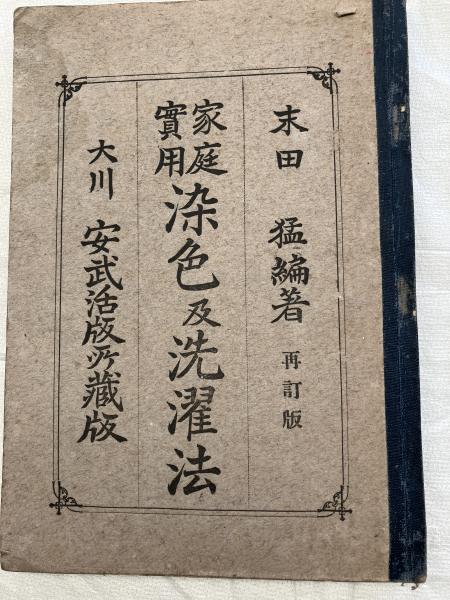 末田 猛編著 再訂版
家庭實用 染色及洗濯法
大川 安武活版所藏版